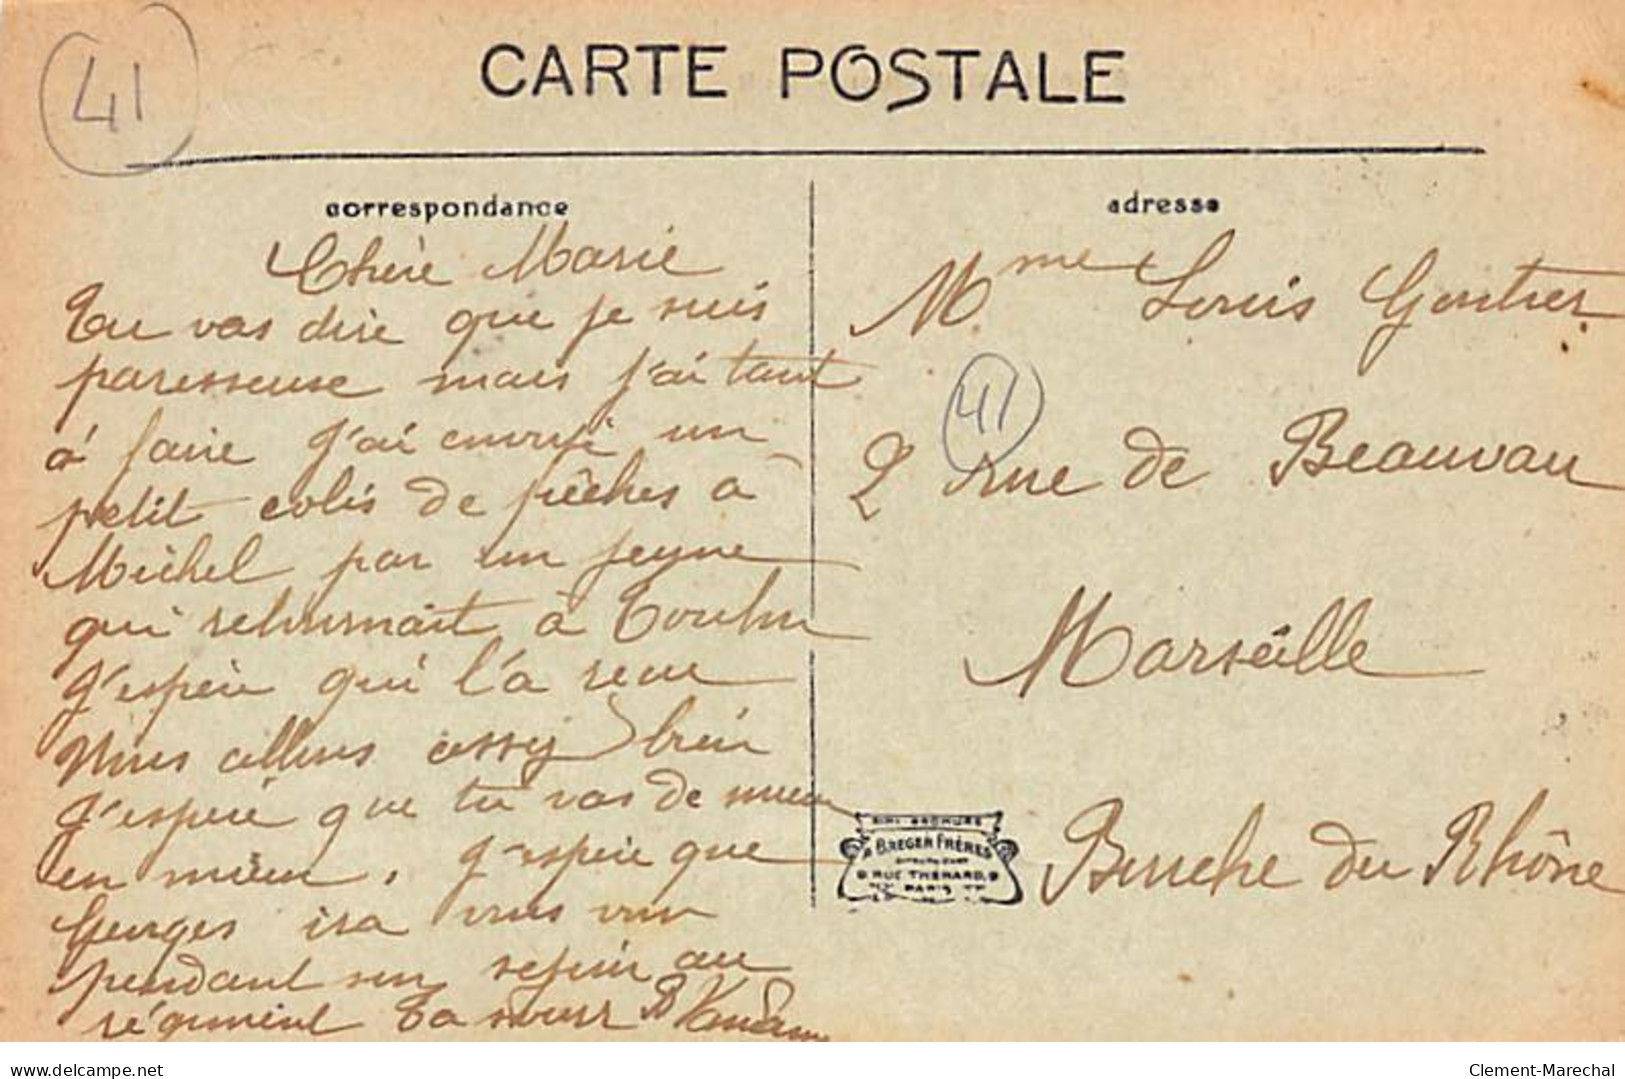 41
CARTE POSTALE
correspondance
Chère Marie
Tu vas dire que je suis
paresseuse mais j'ai tant
à faire J'ai envoyé un
petit colis de pêches à
Michel par un jeune
qui retournait à Toulon
J'espère qui l'a reçu
Nous allons assez bien
J'espère que tu vas de mieux
en mieux. J'espère que
Georges ira vous voir
pendant son séjour au
régiment Ta soeur
adresse
Mme Louis Gontier
41
2 rue de Beauvau
Marseille
Bouche du Rhône
BREGER FRÈRES
9 RUE THÉNARD, 9
PARIS
delcampe.net
Clement-Marechal